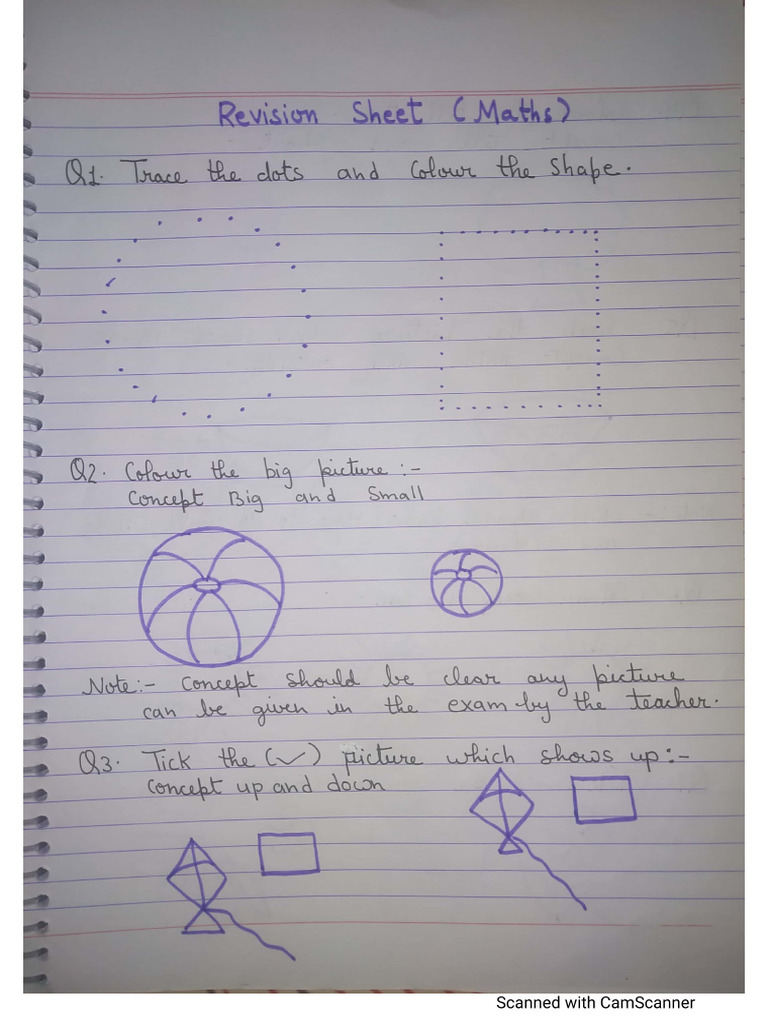 Revision Sheet (Maths)
Q1. Trace the dots and Colour the Shape.
Q2. Colour the big picture :-
Concept Big and Small
Note:- Concept should be clear any picture
can be given in the exam by the teacher.
Q3. Tick the (✓) picture which shows up:-
Concept up and down
Scanned with CamScanner